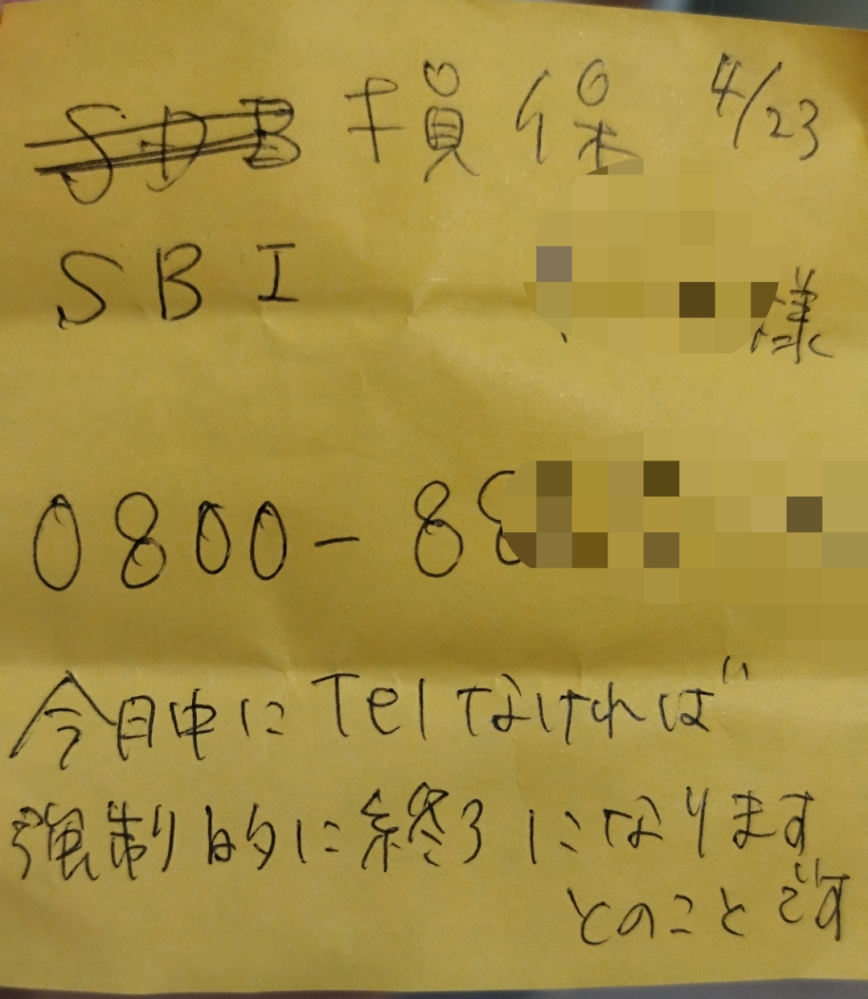 SDB 損保 4/23
SBI 様
0800-88
今日中にTelなければ
強制的に終了になります
とのことです